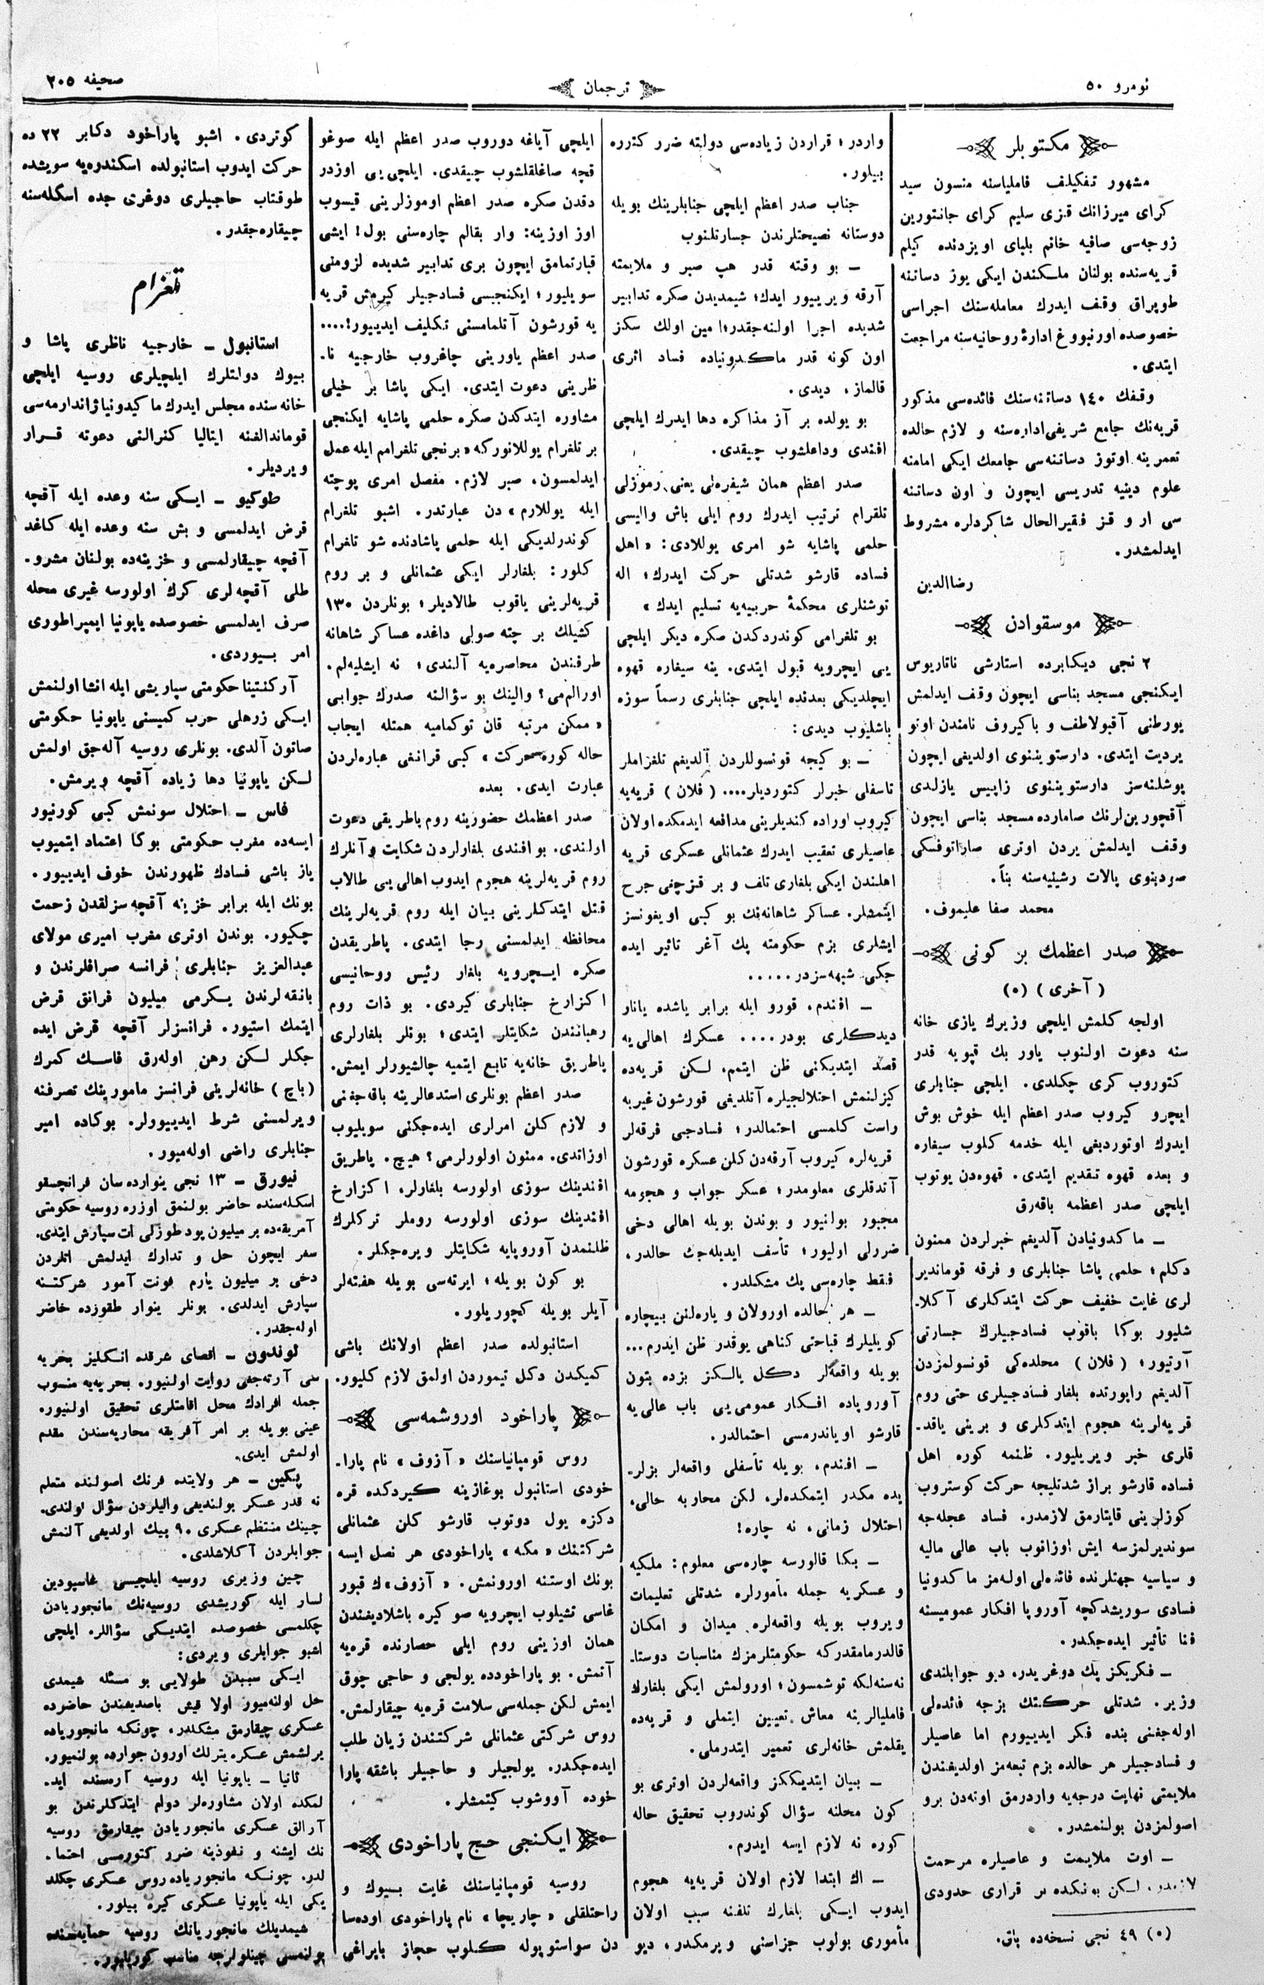 نومرو ٥٠
ترجمان
صحیفه ٢٠٥
مکتوبلر
مشهور تفکیلف فاملیاسنه منسون سید
کرای میرزانك قزی سلیم کرای جانتورین
زوجه‌سی صافیه خانم بلبای اویزدنده کیلم
قریه‌سنده بولنان ملسکندن ایکی یوز دساتنه
طوپراق وقف ایدرك معامله‌سنك اجراسی
خصوصده اورنبووغ ادارهٔ روحانیه‌سنه مراجعت
ایتدی.
وقفك ١٤٠ دساتنه‌سنك فائده‌سی مذکور
قریه‌نك جامع شریفی اداره‌سنه و لازم حالده
تعمرینه اوتوز دساتنه‌سی جامعك ایکی امامنه
علوم دینیه تدریسی ایچون و اون دساتنه
سی ار و قز فقیرالحال شاکردلره مشروط
ایدلمشدر.
رضاالدین
موسقوادن
٢ نجی دیکابرده استارشی تاتاریوس
ایکنجی مسجد بناسی ایچون وقف ایدلمش
یورطنی آقبولاطف و باکیروف نامندن اونو
یردیت ایتدی. دارستویننوی اولدیغی ایچون
پوشلنه‌سز دارستویننوی زاپیس یازلدی
آقچورین‌لرنك صامارده مسجد بناسی ایچون
وقف ایدلمش یردن اوتری صاراتوفسکی
صودبنوی پالات رشینیه‌سنه بناً.
محمد صفا علیموف.
صدر اعظمك بر کونی
(آخری) (٥)
اولجه کلمش ایلچی وزیرك یازی خانه
سنه دعوت اولنوب یاور بك قپویه قدر
کتوروب کری چکلدی. ایلچی جنابلری
ایچرو کیروب صدر اعظم ایله خوش بوش
ایدرك اوتوردیغی ایله خدمه کلوب سیغاره
و بعده قهوه تقدیم ایتدی. قهوه‌دن یوتوب
ایلچی صدر اعظمه باقه‌رق
ـ ماکدونیادن آلدیغم خبرلردن ممنون
دکلم؛ حلمی پاشا جنابلری و فرقه قوماندیر
لری غایت خفیف حرکت ایتدکلری آکلا.
شلیور بوکا باقوب فسادجیلرك جسارتی
آرتیور؛ (فلان) محلده‌کی قونسولمزدن
آلدیغم راپورتده بلغار فسادجیلری حتی روم
قریه‌لرینه هجوم ایتدکلری و برینی یاقد.
قلری خبر ویریلیور. ظنمه کوره اهل
فساده قارشو براز شدتلیجه حرکت کوستروب
کوزلرینی قایتارمق لازمدر. فساد عجله‌جه
سوندیرلمزسه ایش اوزانوب باب عالی مالیه
و سیاسیه جهتلرنده فائده‌لی اوله‌مز ماکدونیا
فسادی سوریشدکچه آوروپا افکار عمومیسنه
فنا تأثیر ایده‌جکدر.
ـ فکریکز پك دوغریدر، دیو جوابلندی
وزیر. شدتلی حرکتك بزجه فائده‌لی
اوله‌جغنی بنده فکر ایدییورم اما عاصیلر
و فسادجیلر هر حالده بزم تبعه‌مز اولدیغندن
ملایمتی نهایت درجه‌یه واردرمق اوته‌دن برو
اصولمزدن بولنمشدر.
ـ اوت ملایمت و عاصیلره مرحمت
لازمدر، لسکن بونکده بر قراری حدودی
(٥) ٤٩ نجی نسخه‌ده باق.
واردر؛ قراردن زیاده‌سی دولته ضرر کتوره
بیلور.
جناب صدر اعظم ایلچی جنابلرینك بویله
دوستانه نصیحتلرندن جسارتلنوب
ـ بو وقته قدر هپ صبر و ملایمته
آرقه ویرییور ایدك؛ شیمدیدن صکره تدابیر
شدیده اجرا اولنه‌جقدر؛ امین اولك سکز
اون کونه قدر ماکدونیاده فساد اثری
قالماز، دیدی.
بو یولده بر آز مذاکره دها ایدرك ایلچی
افندی وداعلشوب چیقدی.
صدر اعظم همان شیفره‌لی یعنی رموزلی
تلقرام ترتیب ایدرك روم ایلی باش والیسی
حلمی پاشایه شو امری یوللادی: «اهل
فساده قارشو شدتلی حرکت ایدرك؛ اله
توشنلری محکمهٔ حربییه‌یه تسلیم ایدك»
بو تلغرامی کوندردکدن صکره دیکر ایلچی
یی ایچرویه قبول ایتدی. ینه سیغاره قهوه
ایچلدیکی بعدنده ایلچی جنابلری رسماً سوزه
باشلیوب دیدی:
ـ بو کیجه قونسوللردن آلدیغم تلغراملر
تاسفلی خبرلر کتوردیلر.... (فلان) قریه‌یه
کیروب اوراده کندیلرینی مدافعه ایدمکده اولان
عاصیلری تعقیب ایدرك عثمانلی عسکری قریه
اهلندن ایکی بلغاری تلف و بر قزچغی جرح
ایتمشلر. عساکر شاهانه‌نك بو کبی اویغونسز
ایشلری بزم حکومته پك آغر تاثیر ایده
جکی شبهه‌سزدر.....
ـ افندم، قورو ایله برابر یاشده یانار
دیدکلری بودر.... عسکرك اهالی‌یه
قصد ایتدیکنی ظن ایتمم، لسکن قریه‌ده
کیزلنمش اختلالجیلره آتلدیغی قورشون غیریه
راست کلمسی احتمالدر؛ فسادجی فرقه‌لر
قریه‌لره کیروب آرقه‌دن کلن عسکره قورشون
آتدقلری معلومدر؛ عسکر جواب و هجومه
مجبور بولنیور و بوندن بویله اهالی دخی
ضررلی اولیور؛ تأسف ایدیله‌جك حالدر،
فقط چاره‌سی پك مشکلدر.
ـ هر حالده اورولان و یاره‌لنن بیچاره
کویلیلرك قباحتی کناهی یوقدر ظن ایدرم...
بویله واقعه‌لر دکل یالسکز بزده بتون
آوروپاده افسکار عمومی‌یی باب عالی‌یه
قارشو اویاندرمسی احتمالدر.
ـ افندم، بویله تأسفلی واقعه‌لر بزلر.
یده مکدر ایتمکده‌لر، لکن محاربه حالی،
اختلال زمانی، نه چاره!
ـ بکا قالورسه چاره‌سی معلوم: ملکیه
و عسکریه جمله مأمورلره شدتلی تعلیمات
ویروب بویله واقعه‌لره میدان و امکان
قالدرمامقدرکه حکومتلرمزك مناسبات دوستا.
نه‌سنه‌لکه توشمسون؛ اورولمش ایکی بلغارك
فاملیالرینه معاش تعیین ایتملی و قریه‌ده
یقلمش خانه‌لری تعمیر ایتدرملی.
ـ بیان ایتدیککز واقعه‌لردن اوتری بو
کون محلنه سؤال کوندروب تحقیق حاله
کوره نه لازم ایسه ایدرم.
ـ اك ابتدا لازم اولان قریه‌یه هجوم
ایدوب ایسکی بلغارك تلفنه سبب اولان
مأموری بولوب جزاسنی ویرمکدر، دیو
ایلچی آیاغه دوروب صدر اعظم ایله صوغو
قچه صاغلقلشوب چیقدی. ایلچی‌یی اوزدر
دقدن صکره صدر اعظم اوموزلرینی قیسوب
اوز اوزینه: وار بقالم چاره‌سنی بول! ایشی
قیارتمامق ایچون بری تدابیر شدیده لزومنی
سویلیور؛ ایکنجیسی فسادجیلر کیرمش قریه
یه قورشون آتلمامسنی تکلیف ایدییور!....
صدر اعظم یاورینی چاغروب خارجیه نا.
ظرینی دعوت ایتدی. ایکی پاشا بر خیلی
مشاوره ایتدکدن صکره حلمی پاشایه ایکنجی
بر تلغرام یوللانورکه «برنجی تلغرامم ایله عمل
ایدلمسون، صبر لازم. مفصل امری پوچته
ایله یوللارم» دن عبارتدر. اشبو تلغرام
کوندرلدیکی ایله حلمی پاشادنده شو تلغرام
کلور: بلغارلر ایکی عثمانلی و بر روم
قریه‌لرینی یاقوب طالادیلر؛ بونلردن ١٣٠
کشیلك بر چته صولی داغده عساکر شاهانه
طرفندن محاصره‌یه آلندی؛ نه ایشلیه‌لم.
اورالم‌می؟ والینك بو سؤالنه صدرك جوابی
«ممکن مرتبه قان توکمامیه همتله ایجاب
حاله کوره حرکت» کبی قرانغی عباره‌لردن
عبارت ایدی. بعده
صدر اعظمك حضورینه روم پاطریقی دعوت
اولندی. بو افندی بلغارلردن شکایت و آنلرك
روم قریه‌لرینه هجوم ایدوب اهالی‌یی طالاب
قتل ایتدکلرینی بیان ایله روم قریه‌لرینك
محافظه ایدلمسنی رجا ایتدی. پاطریقدن
صکره ایسچرویه بلغار رئیس روحانیسی
اکزارخ جنابلری کیردی. بو ذات روم
رهبانندن شکایتلر ایتدی؛ بونلر بلغارلری
پاطریق خانه‌یه تابع ایتمیه چالشیورلر ایمش.
صدر اعظم بونلری استدعالرینه باقه‌جغنی
و لازم کلن امرلری ایده‌جکنی سویلیوب
اوزاتدی. ممنون اولورلرمی؟ هیچ. پاطریق
افندینك سوزی اولورسه بلغارلر، اکزارخ
افندینك سوزی اولورسه روملر ترکلرك
ظلمندن آوروپایه شکایتلر ویره‌جکلر.
بو کون بویله؛ ایرته‌سی بویله هفته‌لر
آیلر بویله کچوریلور.
استانبولده صدر اعظم اولانك باشی
کمیکدن دکل تیموردن اولمق لازم کلیور.
پاراخود اوروشمه‌سی
روس قومپانیاسنك «آزوف» نام پارا.
خودی استانبول بوغازینه کیردکده قره
دکزه یول دوتوب قارشو کلن عثمانلی
شرکتنك «مکه» پاراخودی هر نصل ایسه
بونك اوستنه اورونمش. «آزوف»ك قبور
غاسی تشیلوب ایچرویه صو کیره باشلادیغندن
همان اوزینی روم ایلی حصارنده قره‌یه
آتمش. بو پاراخودده یولجی و حاجی چوق
ایمش لکن جمله‌سی سلامت قره‌یه چیقارلمش.
روس شرکتی عثمانلی شرکتندن زیان طلب
ایده‌جکدر. یولجیلر و حاجیلر باشقه پارا
خوده آووشوب کیتمشلر.
ایکنجی حج پاراخودی
روسیه قومپانیاسنك غایت بیوك و
راحتلقلی «چاریچا» نام پاراخودی اوده‌سا
دن سواستوپوله کلوب حجاز بایراغی
کوتردی. اشبو پاراخود دکابر ٢٢ ده
حرکت ایدوب استانبولده اسکندوه‌یه سویشده
طوقتاب حاجیلری دوغری جده اسکله‌سنه
چیقاره‌جقدر.
تلغرام
استانبول ـ خارجیه ناظری پاشا و
بیوك دولتلرك ایلچیلری روسیه ایلچی
خانه‌سنده مجلس ایدرك ماکیدونیا ژاندارمه‌سی
قومانداللغنه ایتالیا کنرالنی دعوته قرار
ویردیلر.
طوکیو ـ ایسکی سنه وعده ایله آقچه
قرض ایدلمسی و بش سنه وعده ایله کاغد
آقچه چیقارلمسی و خزینه‌ده بولنان مشرو.
طلی آقچه‌لری کرك اولورسه غیری محله
صرف ایدلمسی خصوصده یاپونیا ایمپراطوری
امر بیوردی.
آرکنتینا حکومتی سپاریشی ایله انشا اولنمش
ایسکی زرهلی حرب کمیسنی یاپونیا حکومتی
صاتون آلدی. بونلری روسیه آله‌جق اولمش
لسکن یاپونیا دها زیاده آقچه ویرمش.
فاس ـ احتلال سونمش کبی کورنیور
ایسه‌ده مغرب حکومتی بوکا اعتماد ایتمیوب
یاز باشی فسادك ظهورندن خوف ایدییور.
بونك ایله برابر خزینه آقچه سزلقدن زحمت
چکیور. بوندن اوتری مغرب امیری مولای
عبدالعزیز جنابلری فرانسه صرافلرندن و
بانقه‌لرندن یسکرمی میلیون فرانق قرض
ایتمك استیور. فرانسزلر آقچه قرض ایده
جکلر لسکن رهن اوله‌رق فاسك کمرك
(باج) خانه‌لرینی فرانسز مامورینك تصرفنه
ویرلمسنی شرط ایدییوورلر. بوکاده امیر
جنابلری راضی اوله‌میور.
نیورق ـ ١٣ نجی ینوارده سان فرانچسقو
اسکله‌سنده حاضر بولنمق اوزره روسیه حکومتی
آمریقه‌ده بر میلیون پود طوزلی ات سپارش ایتدی.
سفر ایچون حل و تدارك ایدلمش اتلردن
دخی بر میلیون یارم فونت آمور شرکتنه
سپارش ایدلدی. بونلر ینوار طقوزده حاضر
اوله‌جقدر.
لوندون ـ اقصای شرقده انسکلیز بحریه
سی آرته‌جغی روایت اولنیور. بحریه‌یه منسوب
جمله افرادك محل اقامتلری تحقیق اولنیور.
عینی بویله بر امر آفریقه محاربه‌سندن مقدم
اولمش ایدی.
پکین ـ هر ولایتده فرنك اصولنده متعلم
نه قدر عسکر بولندیغی والیلردن سؤال اولندی.
چینك منتظم عسکری ٩٠ بیك اولدیغی آلنمش
جوابلردن آکلاشلدی.
چین وزیری روسیه ایلچیسی غاسپودین
لسار ایله کوریشدی روسیه‌نك مانجوریادن
چکلمسی خصوصده ایتدیسکی سؤاللر، ایلچی
اشبو جوابلری ویردی:
ایسکی سببدن طولایی بو مسئله شیمدی
حل اولنه‌میور اولا قیش باصدیغندن حاضرده
عسکری چیقارمق مشکلدر، چونکه مانجوریاده
یرلشمش عسکره یترلك اورون جوارده بولنمیور.
ثانیا ـ یاپونیا ایله روسیه آره‌سنده اید.
لمکده اولان مشاوره‌لر دوام ایتدکلرندن بو
آرالق عسکری مانجوریادن چیقارمق روسیه
نك ایشنه و نفوذینه ضرر کتورمسی احتما.
لدر. چونسکه مانجوریاده روس عسکری چکلد
یکی ایله یاپونیا عسکری کیره بیلور.
شیمدیلك مانجوریانك روسیه حمایه‌سنده
بولنمسی چینلولرجه مناسب کوریلیور.